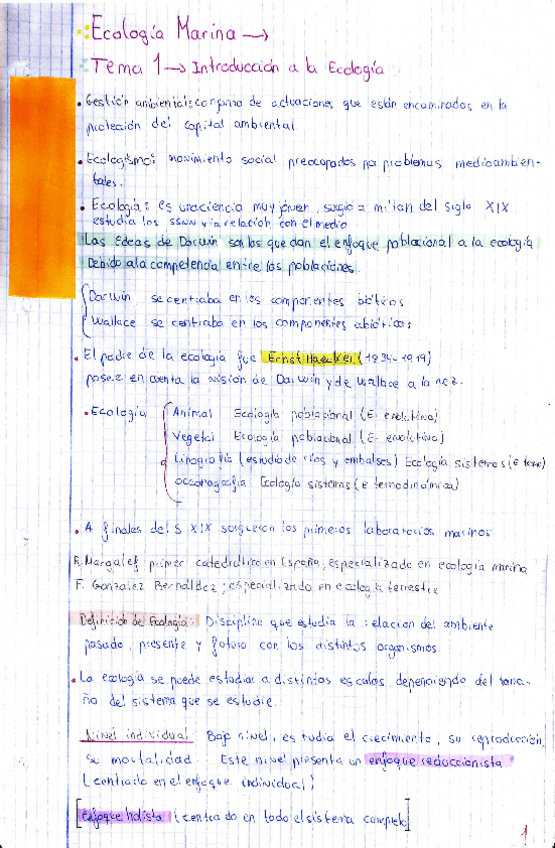 Ecología Marina →
Tema 1 → Introducción a la Ecología
• Gestión ambiental: conjunto de actuaciones que están encaminados en la
protección del capital ambiental
• Ecologismo: movimiento social preocupados por problemas medioambien-
tales.
• Ecología: es una ciencia muy joven, surgió a mitan del siglo XIX
estudia los ssvv y la relación con el medio
Las ideas de Darwin son las que dan el enfoque poblacional a la ecología
Debido a la competencia entre las poblaciones.
Darwin se centraba en los componentes bióticos
Wallace se centraba en los componentes abióticos
• El padre de la ecología fue Ernst Haeckel (1934-1919)
posee en cuenta la visión de Darwin y de Wallace a la vez.
• Ecología
Animal Ecología poblacional (E. evolutiva)
Vegetal Ecología poblacional (E. evolutiva)
(estudio de ríos y embalses) Ecología sistemas (e termo)
oceanografía Ecología sistemas (e termodinámica)
• A finales del S XIX surgieron los primeros laboratorios marinos
R. Margalef primer catedrático en España, especializado en ecología marina
F. Gonzalez Bernaldez, especializando en ecología terrestre
Definición de Ecología: Disciplina que estudia la relacion del ambiente
pasado, presente y futuro con los distintos organismos
• La ecología se puede estudiar a distintas escalas, dependiendo del tama-
ño del sistema que se estudie.
Nivel individual Bajo nivel, estudia el crecimiento, su reproducción,
su mortalidad. Este nivel presenta un enfoque reduccionista
(centrado en el enfoque individual)
[enfoque holista: centrado en todo el sistema completo]
1